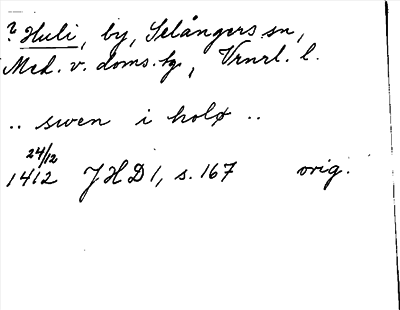 ? Huli, by, Selångers sn,
Med. v. doms.tg, Vrnrl. l.
.. swen i holø ..
24/12
1412 JHD 1, s. 167 orig.